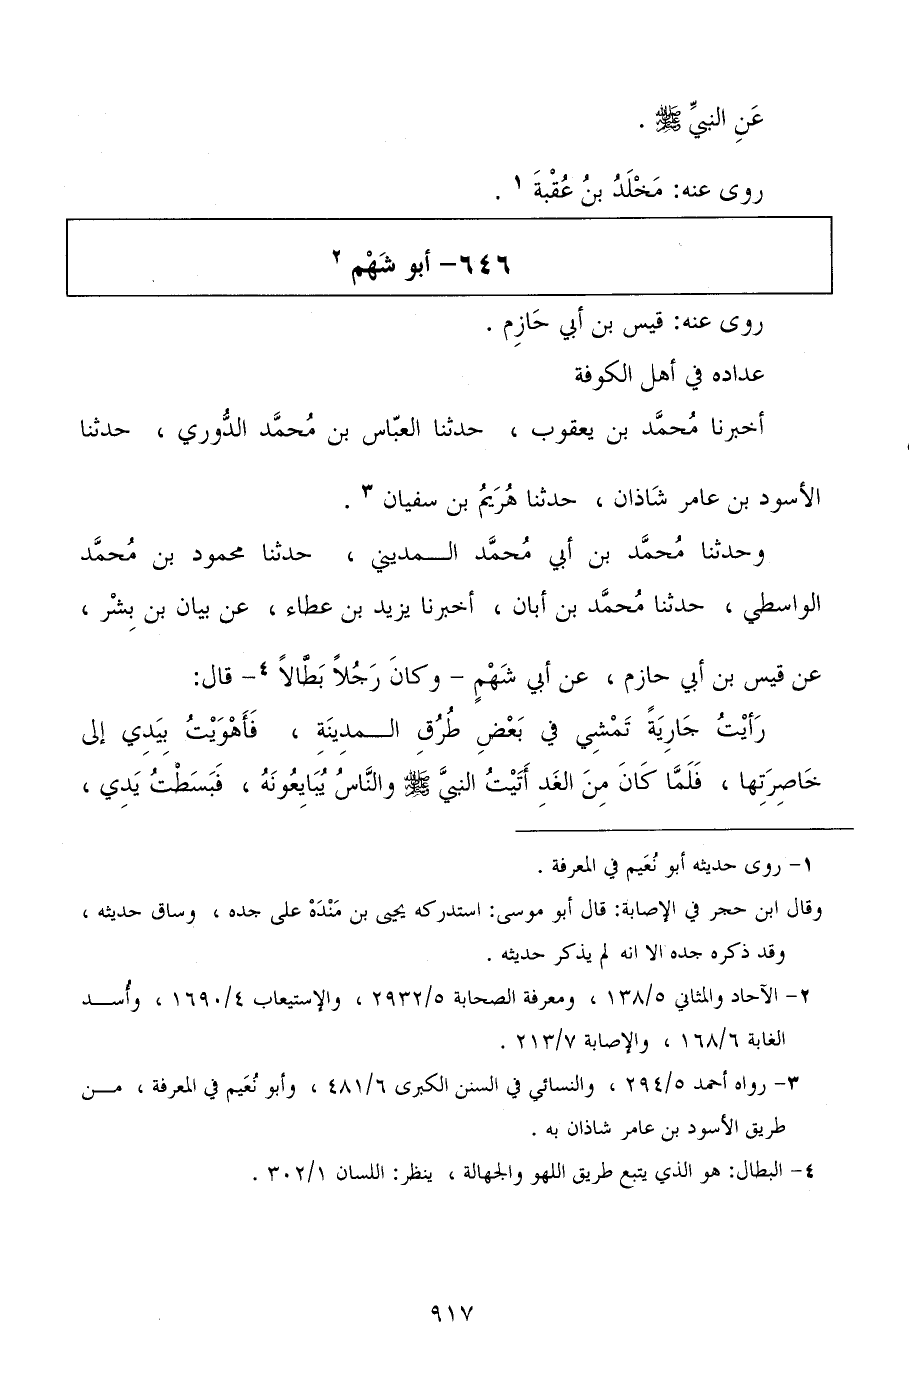 عَنِ النبيِّ ﷺ .
روى عنه: مَخْلَدُ بنُ عُقْبةَ ١ .
٦٤٦- أبو شَهْم ٢
روى عنه: قيس بن أبي حَازِم .
عداده في أهل الكوفة
أخبرنا مُحمَّد بن يعقوب ، حدثنا العبّاس بن مُحمَّد الدُّوري ، حدثنا
الأسود بن عامر شَاذان ، حدثنا هُرَيمُ بن سفيان ٣ .
وحدثنا مُحمَّد بن أبي مُحمَّد الـمديني ، حدثنا محمود بن مُحمَّد
الواسطي ، حدثنا مُحمَّد بن أبان ، أخبرنا يزيد بن عطاء ، عن بيان بن بِشْر ،
عن قيس بن أبي حازم ، عن أبي شَهْمٍ - وكانَ رَجُلاً بَطَّالاً ٤- قال:
رَأيْتُ جَاريَةً تَمْشي في بَعْضِ طُرُقِ الـمدِينَةِ ، فَأَهْوَيْتُ بِيَدِي إلى
خَاصِرَتِها ، فَلَمَّا كَانَ مِنَ الغَدِ أَتَيْتُ النبيَّ ﷺ والنَّاسُ يُبَايِعُونَهُ ، فَبَسَطْتُ يَدِي ،
١- روى حديثه أبو نُعَيم في المعرفة .
وقال ابن حجر في الإصابة: قال أبو موسى: استدركه يحيى بن مَنْدَهْ على جده ، وساق حديثه ،
وقد ذكره جده الا انه لم يذكر حديثه .
٢- الآحاد والمثاني ١٣٨/٥ ، ومعرفة الصحابة ٢٩٣٢/٥ ، والإستيعاب ١٦٩٠/٤ ، وأُسد
الغابة ١٦٨/٦ ، والإصابة ٢١٣/٧ .
٣- رواه أحمد ٢٩٤/٥ ، والنسائي في السنن الكبرى ٤٨١/٦ ، وأبو نُعَيم في المعرفة ، من
طريق الأسود بن عامر شاذان به .
٤- البطال: هو الذي يتبع طريق اللهو والجهالة ، ينظر: اللسان ٣٠٢/١ .
٩١٧